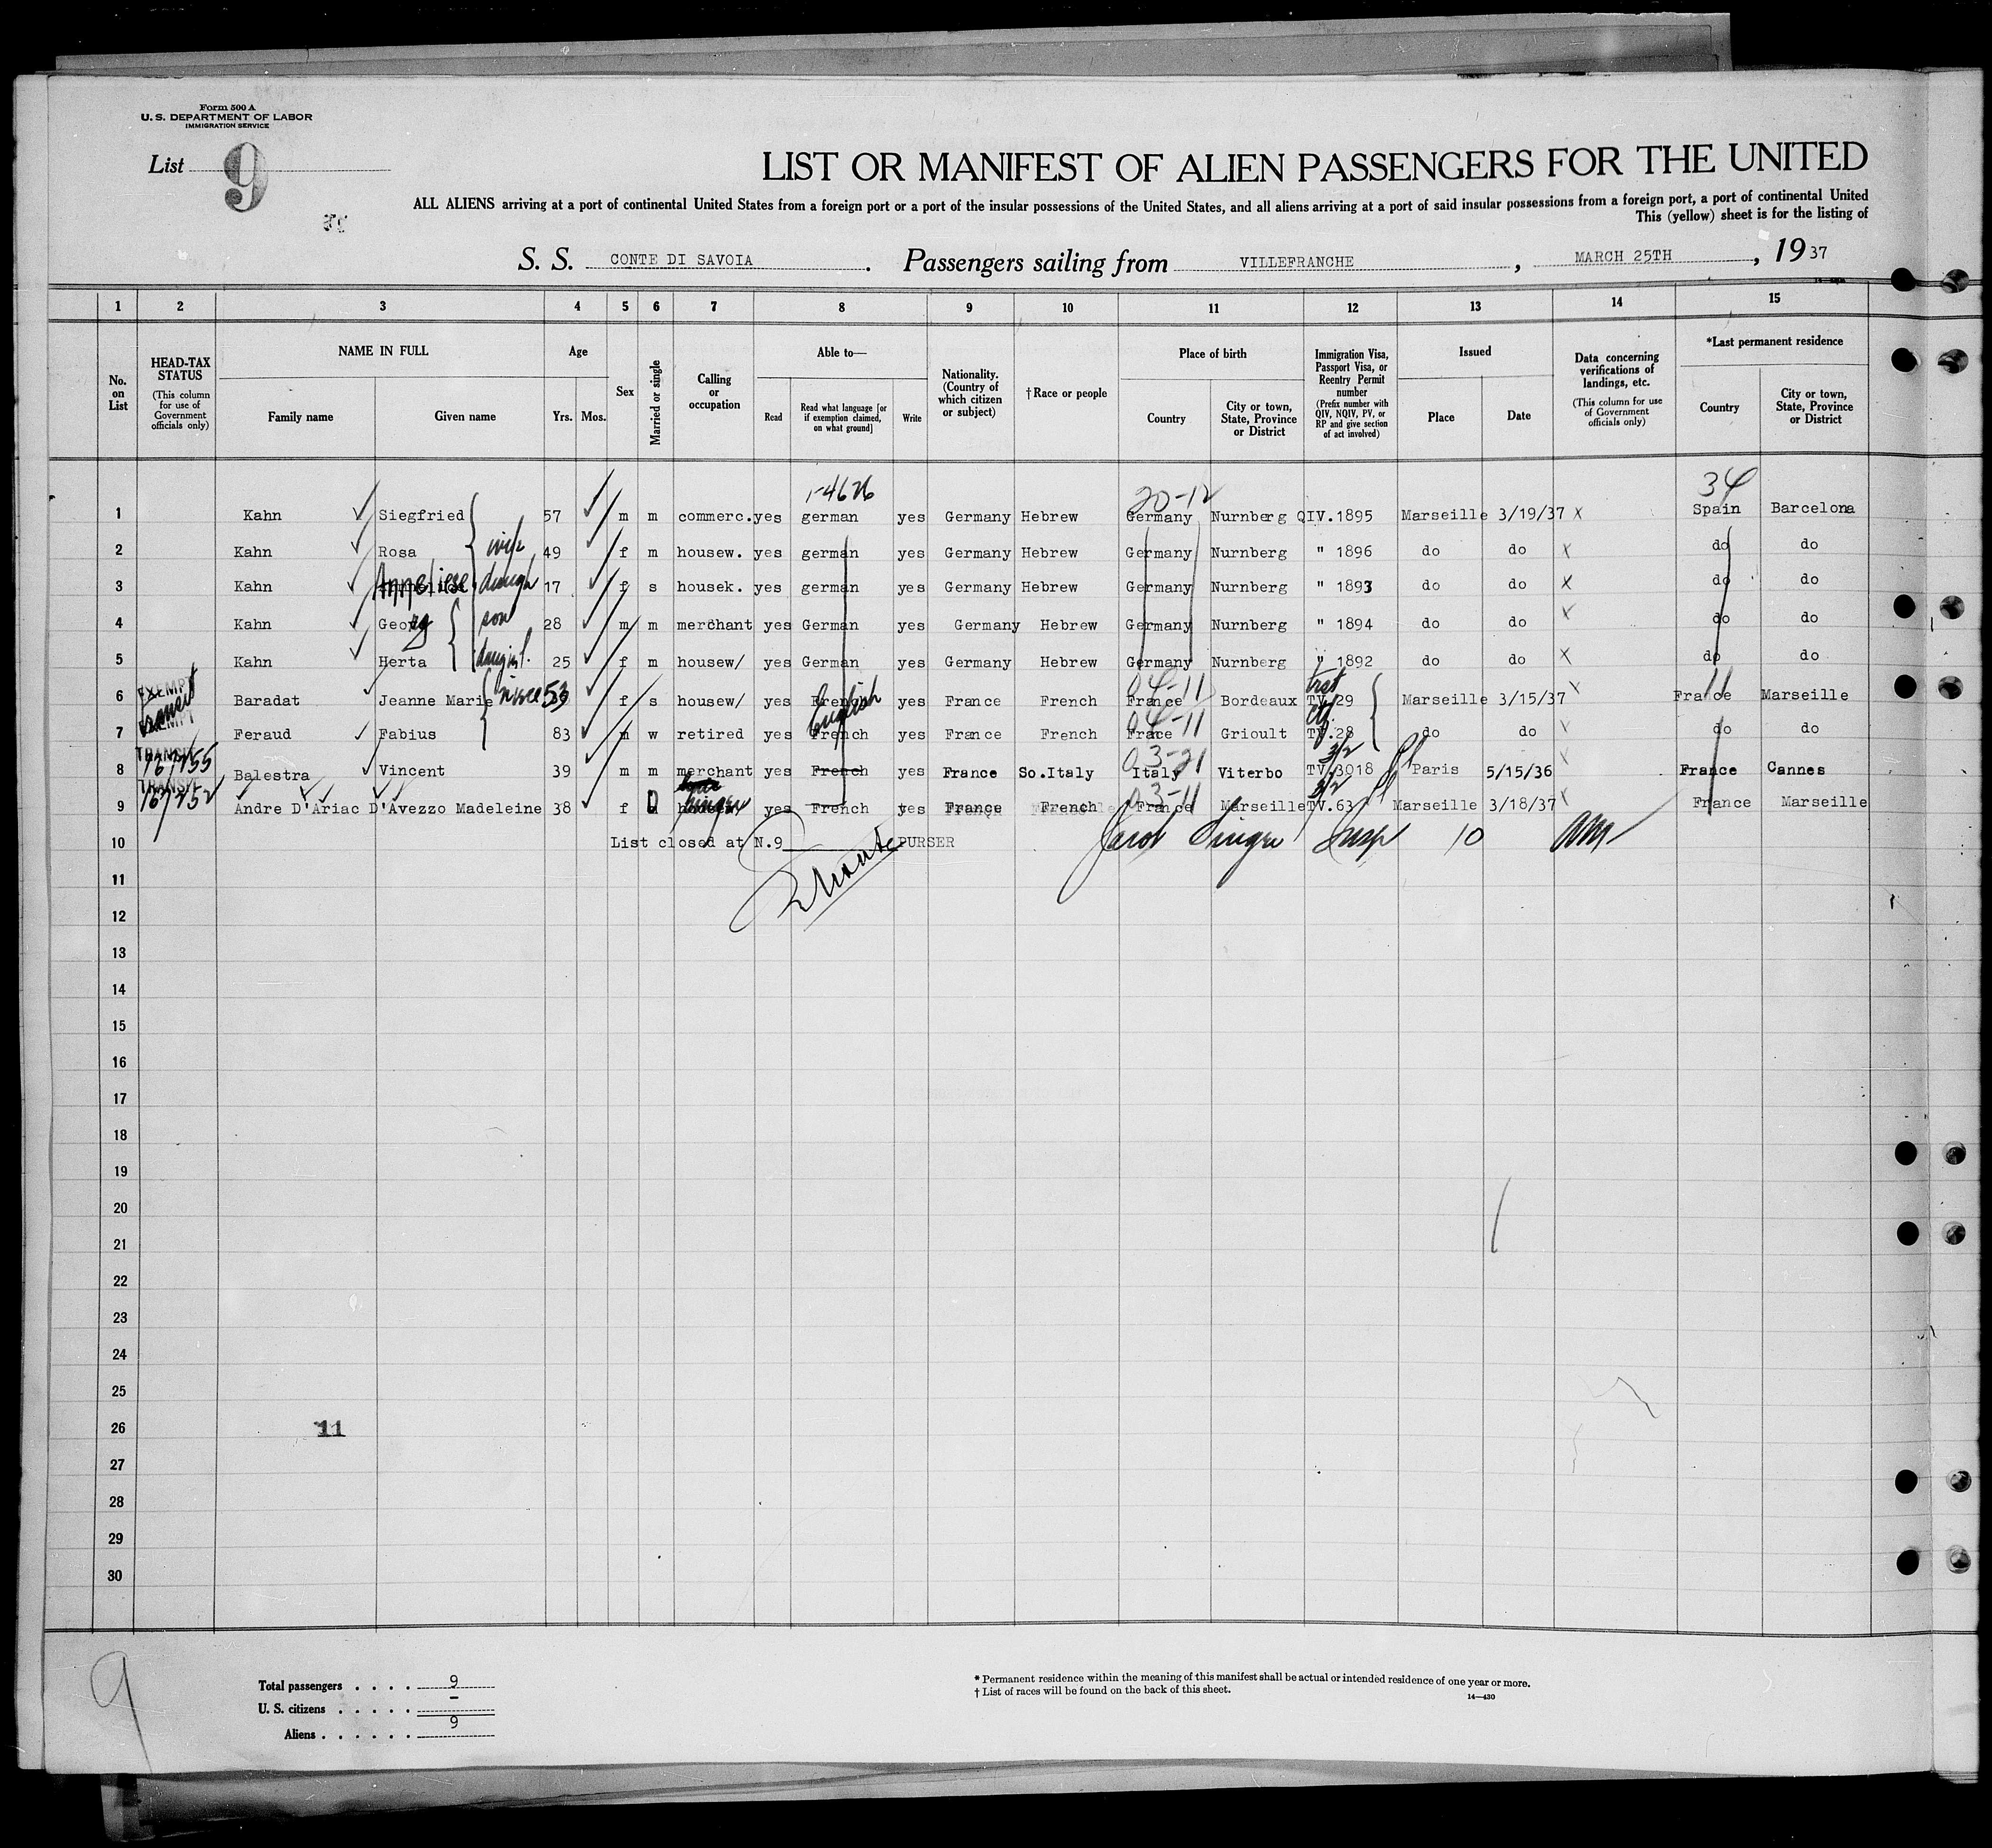 Form 500 A
U. S. DEPARTMENT OF LABOR
IMMIGRATION SERVICE
List 9
LIST OR MANIFEST OF ALIEN PASSENGERS FOR THE UNITED
ALL ALIENS arriving at a port of continental United States from a foreign port or a port of the insular possessions of the United States, and all aliens arriving at a port of said insular possessions from a foreign port, a port of continental United
This (yellow) sheet is for the listing of
S. S. CONTE DI SAVOIA. Passengers sailing from VILLEFRANCHE, MARCH 25TH, 1937
1 2 3 4 5 6 7 8 9 10 11 12 13 14 15
No. on List
HEAD-TAX STATUS (This column for use of Government officials only)
NAME IN FULL
Family name
Given name
Age
Yrs. Mos.
Sex
Married or single
Calling or occupation
Able to—
Read
Read what language [or if exemption claimed, on what ground]
Write
Nationality. (Country of which citizen or subject)
†Race or people
Place of birth
Country
City or town, State, Province or District
Immigration Visa, Passport Visa, or Reentry Permit number (Prefix number with QIV, NQIV, PV, or RP and give section of act involved)
Issued
Place
Date
Data concerning verifications of landings, etc. (This column for use of Government officials only)
*Last permanent residence
Country
City or town, State, Province or District
20-12 34
1 Kahn Siegfried 57 m m commerc. yes german yes Germany Hebrew Germany Nurnberg QIV.1895 Marseille 3/19/37 x Spain Barcelona
2 Kahn Rosa wife 49 f m housew. yes german yes Germany Hebrew Germany Nurnberg " 1896 do do x do do
3 Kahn Anneliese daugh 17 f s housek. yes german yes Germany Hebrew Germany Nurnberg " 1893 do do x do do
4 Kahn Georg son 28 m m merchant yes German yes Germany Hebrew Germany Nurnberg " 1894 do do x do do
5 Kahn Herta 25 f m housew/ yes German yes Germany Hebrew Germany Nurnberg " 1892 do do x do do
EXEMPT transit 04-11 11
6 Baradat Jeanne Marie niece 53 f s housew/ yes French English yes France French France Bordeaux TV.29 Marseille 3/15/37 x France Marseille
EXEMPT 04-11
7 Feraud Fabius 83 m w retired yes French yes France French Frace Grioult TV.28 do do x do do
TRANSIT 167255 03-21 3/2
8 Balestra Vincent 39 m m merchant yes French yes France So.Italy Italy Viterbo TV.3018 Paris 5/15/36 x France Cannes
TRANSIT 167252 03-11 3/2
9 Andre D'Ariac D'Avezzo Madeleine 38 f D singer yes French yes France French France Marseille TV.63 Marseille 3/18/37 x France Marseille
10 List closed at N.9 PURSER Insp 10
11
12
13
14
15
16
17
18
19
20
21
22
23
24
25
26 11
27
28
29
30
9
Total passengers . . . . 9
U. S. citizens . . . . . –
Aliens . . . . . . 9
* Permanent residence within the meaning of this manifest shall be actual or intended residence of one year or more.
† List of races will be found on the back of this sheet.
14—430